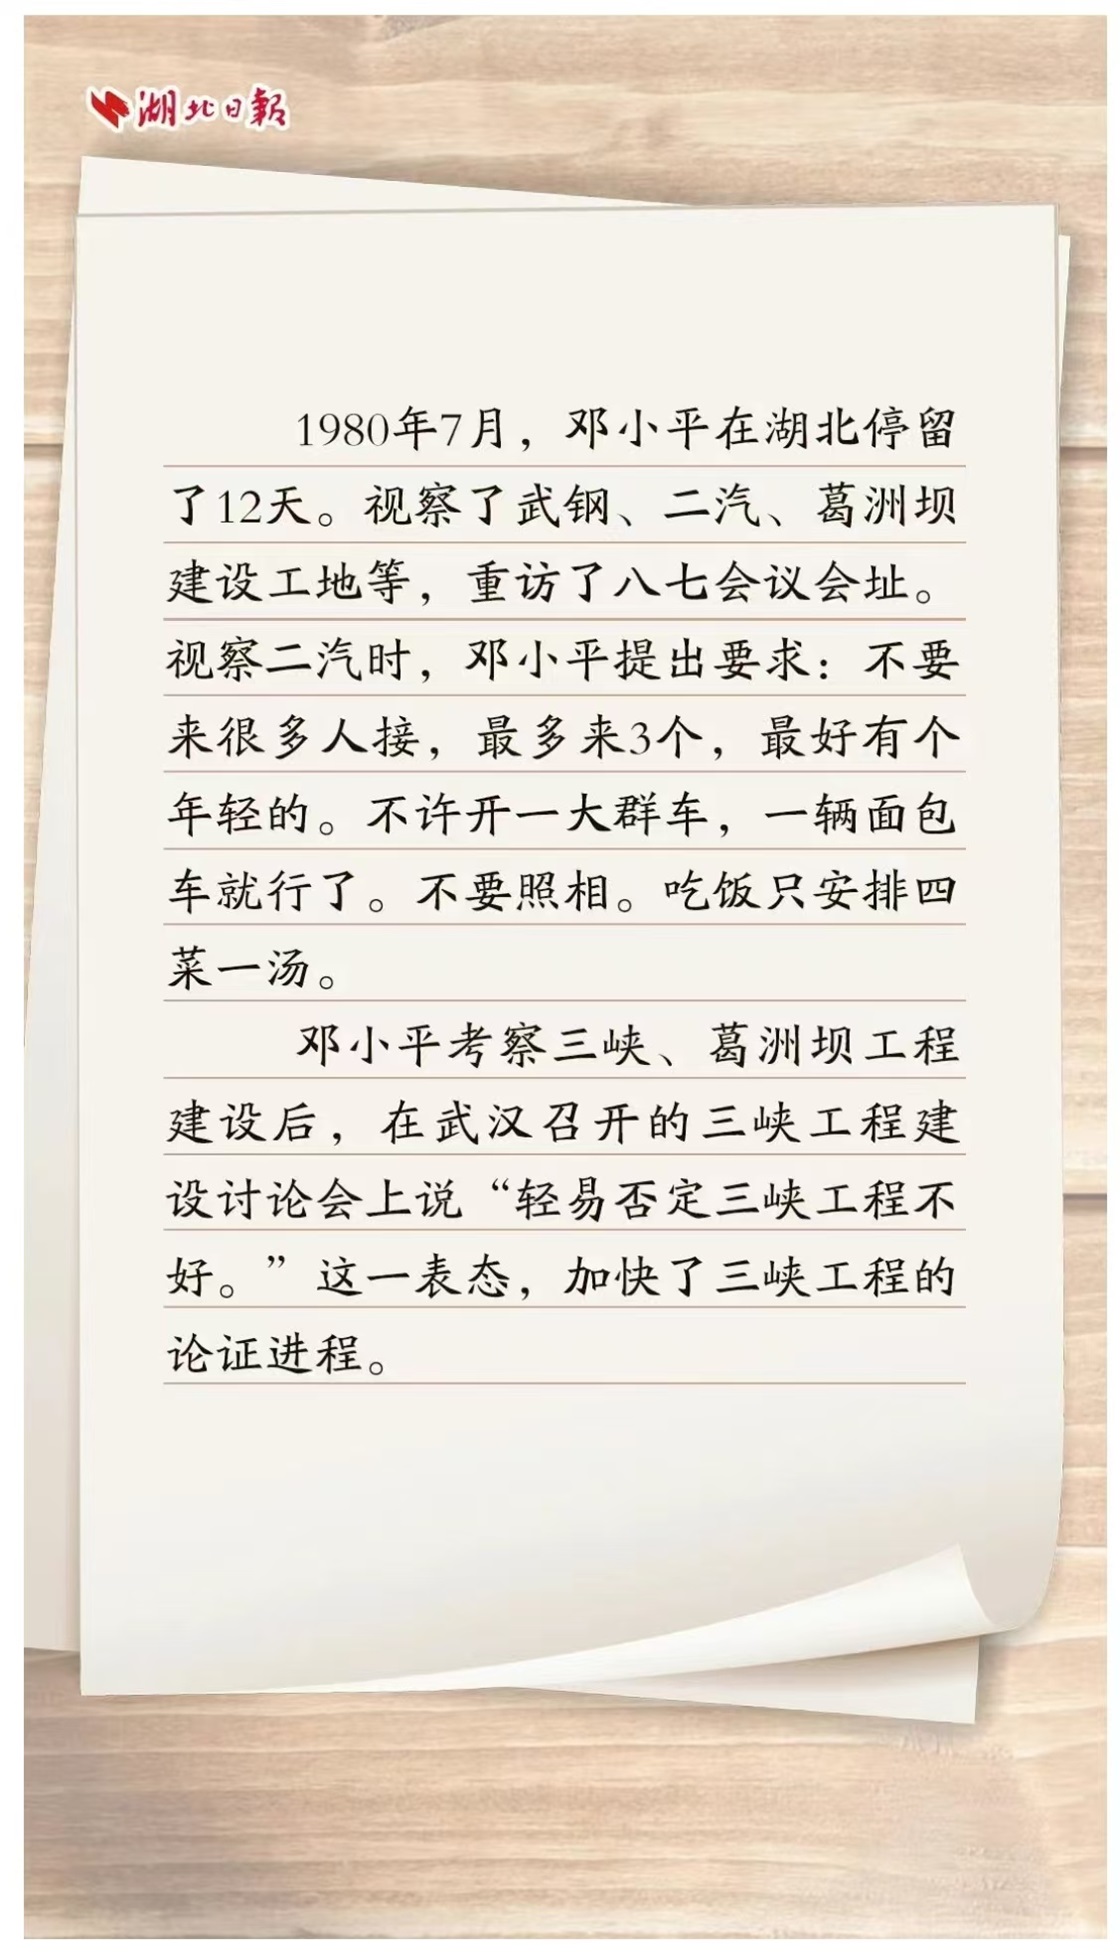 湖北日報
1980年7月，邓小平在湖北停留
了12天。视察了武钢、二汽、葛洲坝
建设工地等，重访了八七会议会址。
视察二汽时，邓小平提出要求：不要
来很多人接，最多来3个，最好有个
年轻的。不许开一大群车，一辆面包
车就行了。不要照相。吃饭只安排四
菜一汤。
邓小平考察三峡、葛洲坝工程
建设后，在武汉召开的三峡工程建
设讨论会上说“轻易否定三峡工程不
好。”这一表态，加快了三峡工程的
论证进程。